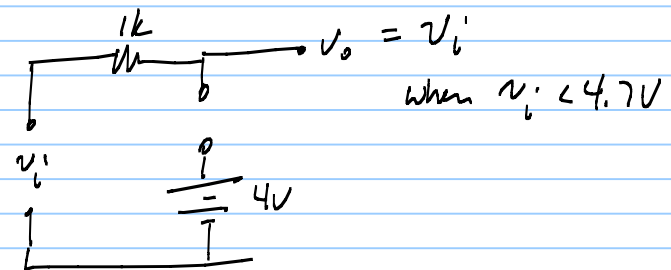 1k
v₀ = vᵢ
when vᵢ < 4.7V
vᵢ
4V